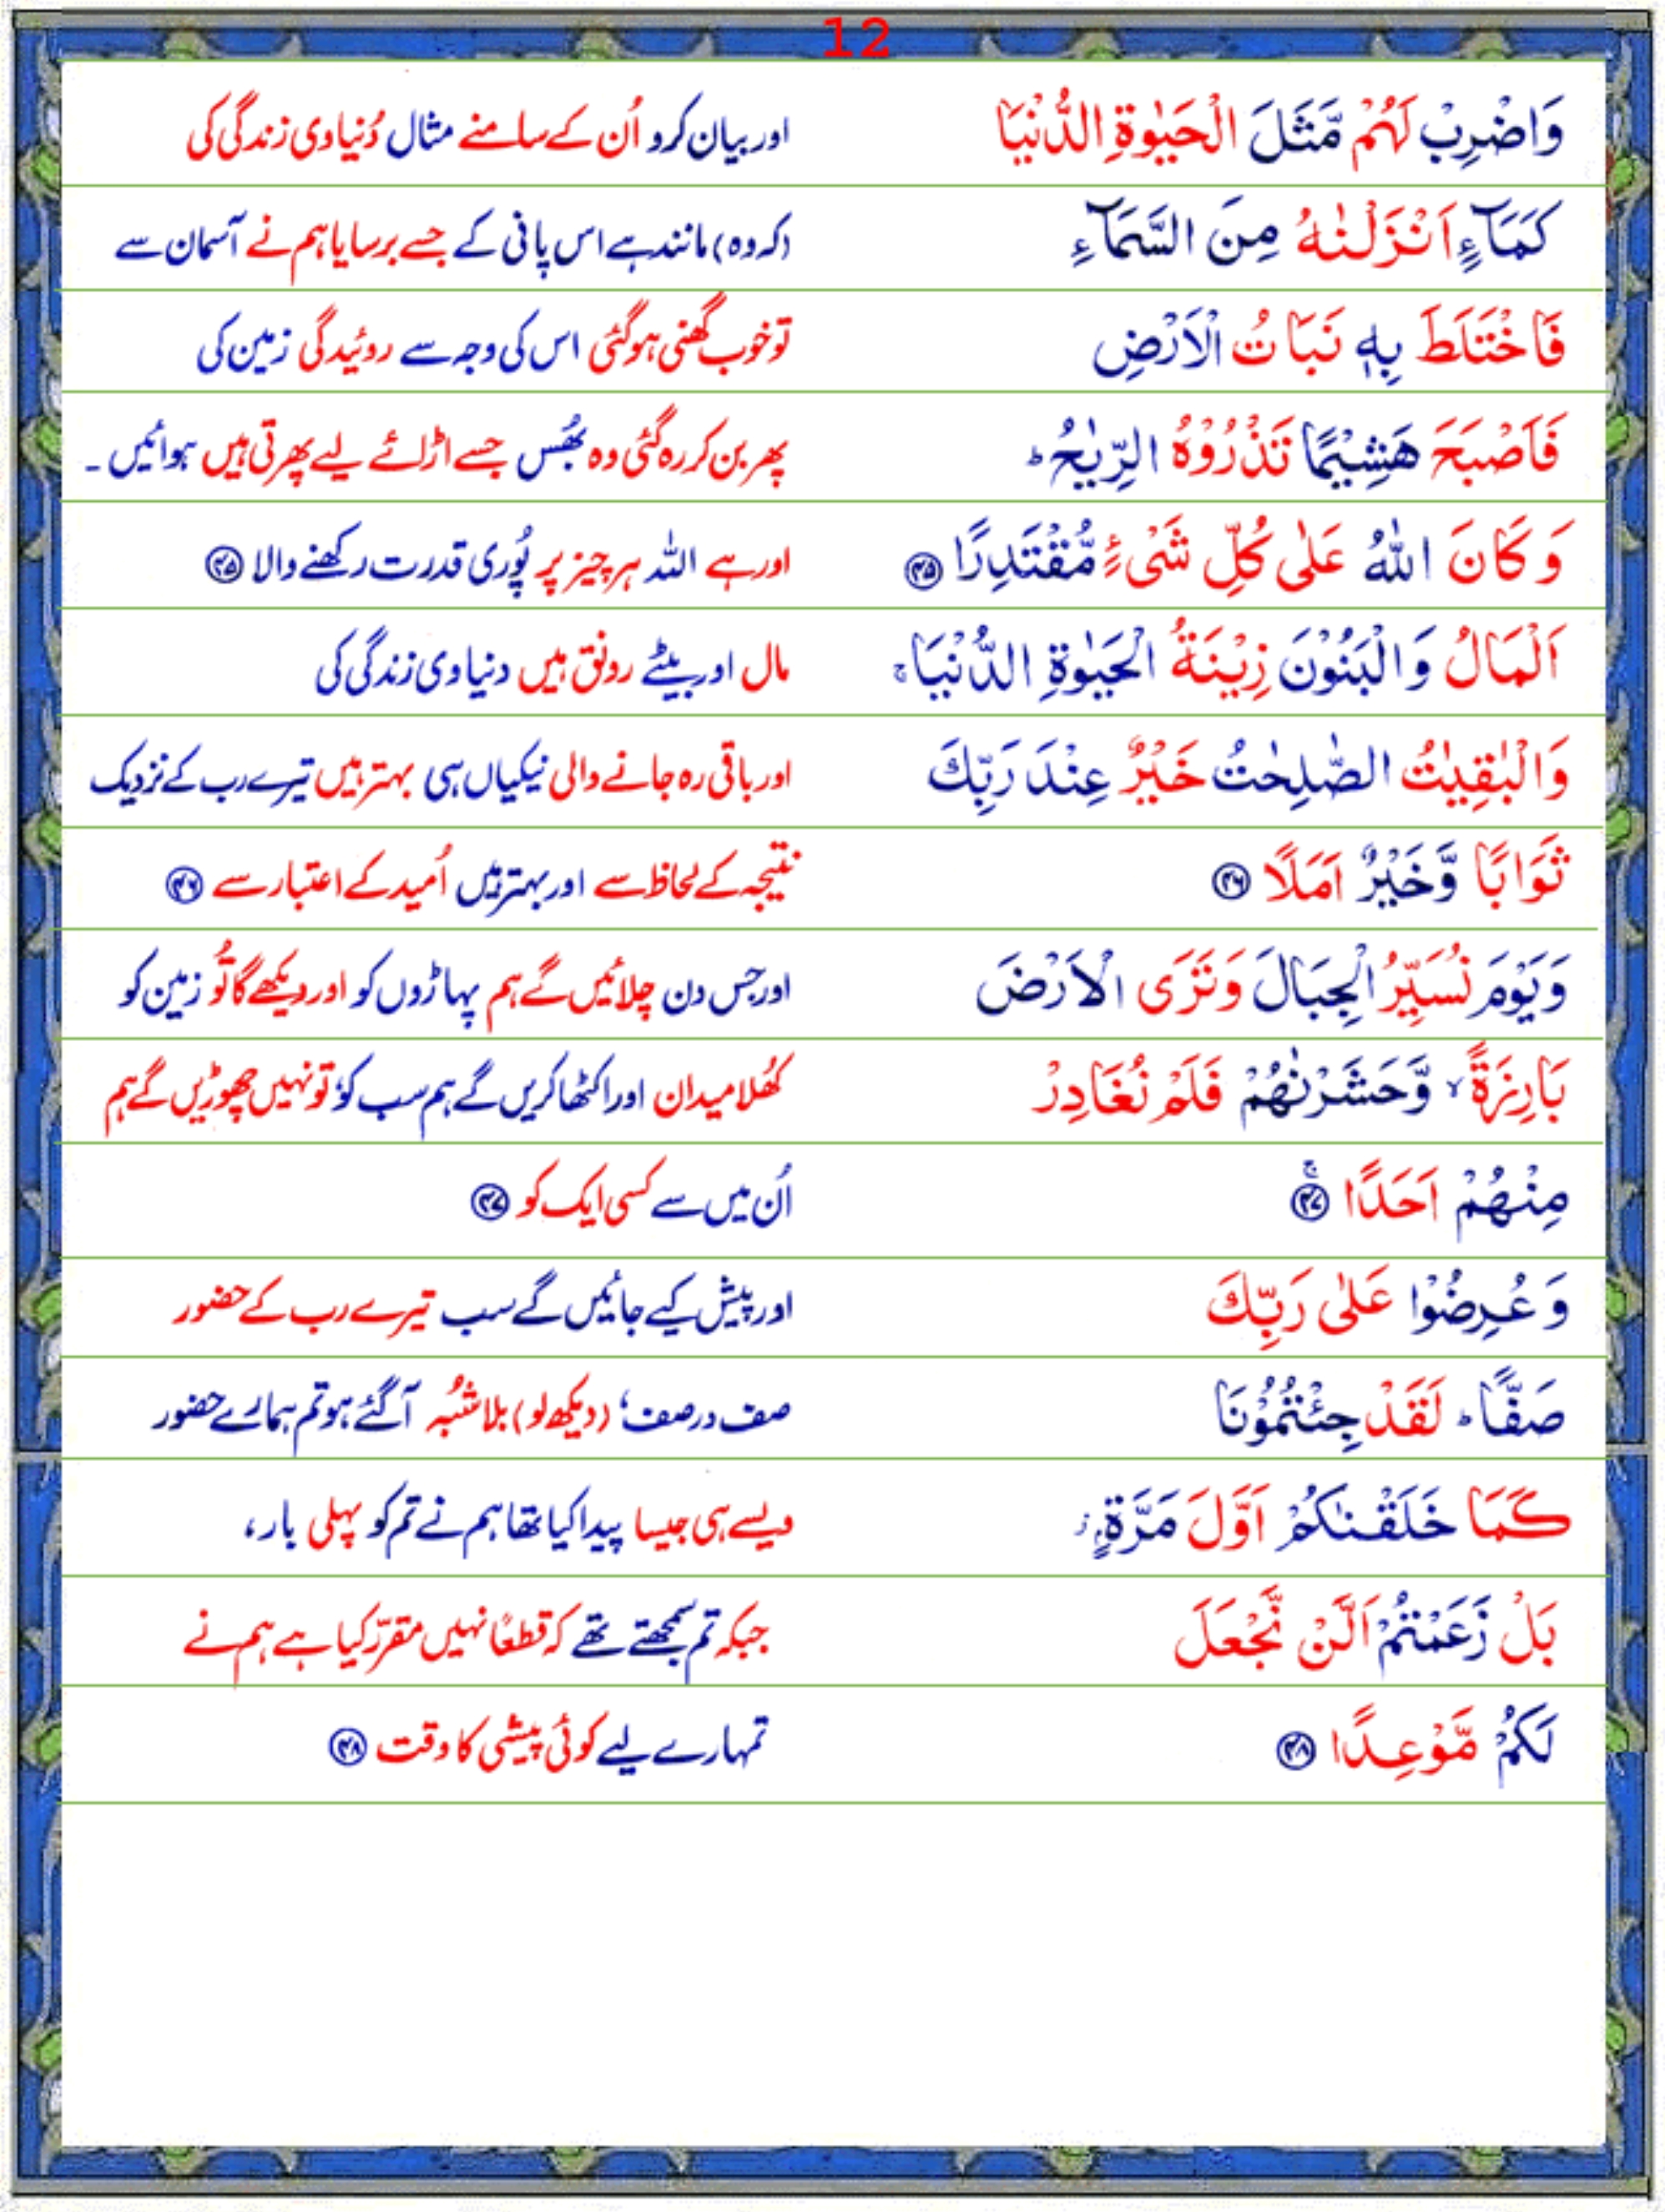 12
وَاضْرِبْ لَهُمْ مَّثَلَ الْحَيٰوةِ الدُّنْيَا اور بیان کرو اُن کے سامنے مثال دُنیاوی زندگی کی
كَمَآءٍ اَنْزَلْنٰهُ مِنَ السَّمَآءِ (کہ وہ) مانند ہے اس پانی کے جسے برسایا ہم نے آسمان سے
فَاخْتَلَطَ بِهٖ نَبَاتُ الْاَرْضِ تو خوب گھنی ہوگئی اس کی وجہ سے روئیدگی زمین کی
فَاَصْبَحَ هَشِيْمًا تَذْرُوْهُ الرِّيٰحُ ؕ پھر بن کر رہ گئی وہ بھُس جسے اڑائے لیے پھرتی ہیں ہوائیں ۔
وَ كَانَ اللّٰهُ عَلٰى كُلِّ شَىْءٍ مُّقْتَدِرًا ۴۵ اور ہے اللہ ہر چیز پر پُوری قدرت رکھنے والا ۴۵
اَلْمَالُ وَالْبَنُوْنَ زِيْنَةُ الْحَيٰوةِ الدُّنْيَا ۚ مال اور بیٹے رونق ہیں دنیاوی زندگی کی
وَالْبٰقِيٰتُ الصّٰلِحٰتُ خَيْرٌ عِنْدَ رَبِّكَ اور باقی رہ جانے والی نیکیاں ہی بہتر ہیں تیرے رب کے نزدیک
ثَوَابًا وَّخَيْرٌ اَمَلًا ۴۶ نتیجہ کے لحاظ سے اور بہتر ہیں اُمید کے اعتبار سے ۴۶
وَيَوْمَ نُسَيِّرُ الْجِبَالَ وَتَرَى الْاَرْضَ اور جس دن چلائیں گے ہم پہاڑوں کو اور دیکھے گا تُو زمین کو
بَارِزَةً ۙ وَّحَشَرْنٰهُمْ فَلَمْ نُغَادِرْ کھُلا میدان اور اکٹھا کریں گے ہم سب کو، تو نہیں چھوڑیں گے ہم
مِنْهُمْ اَحَدًا ۚ ۴۷ اُن میں سے کسی ایک کو ۴۷
وَ عُرِضُوْا عَلٰى رَبِّكَ اور پیش کیے جائیں گے سب تیرے رب کے حضور
صَفًّا ؕ لَقَدْ جِئْتُمُوْنَا صف در صف، (دیکھ لو) بلاشُبہ آگئے ہو تم ہمارے حضور
كَمَا خَلَقْنٰكُمْ اَوَّلَ مَرَّةٍۭ ؗ ویسے ہی جیسا پیدا کیا تھا ہم نے تم کو پہلی بار،
بَلْ زَعَمْتُمْ اَلَّنْ نَّجْعَلَ جبکہ تم سمجھتے تھے کہ قطعًا نہیں مقرّر کیا ہے ہم نے
لَكُمْ مَّوْعِدًا ۴۸ تمہارے لیے کوئی پیشی کا وقت ۴۸